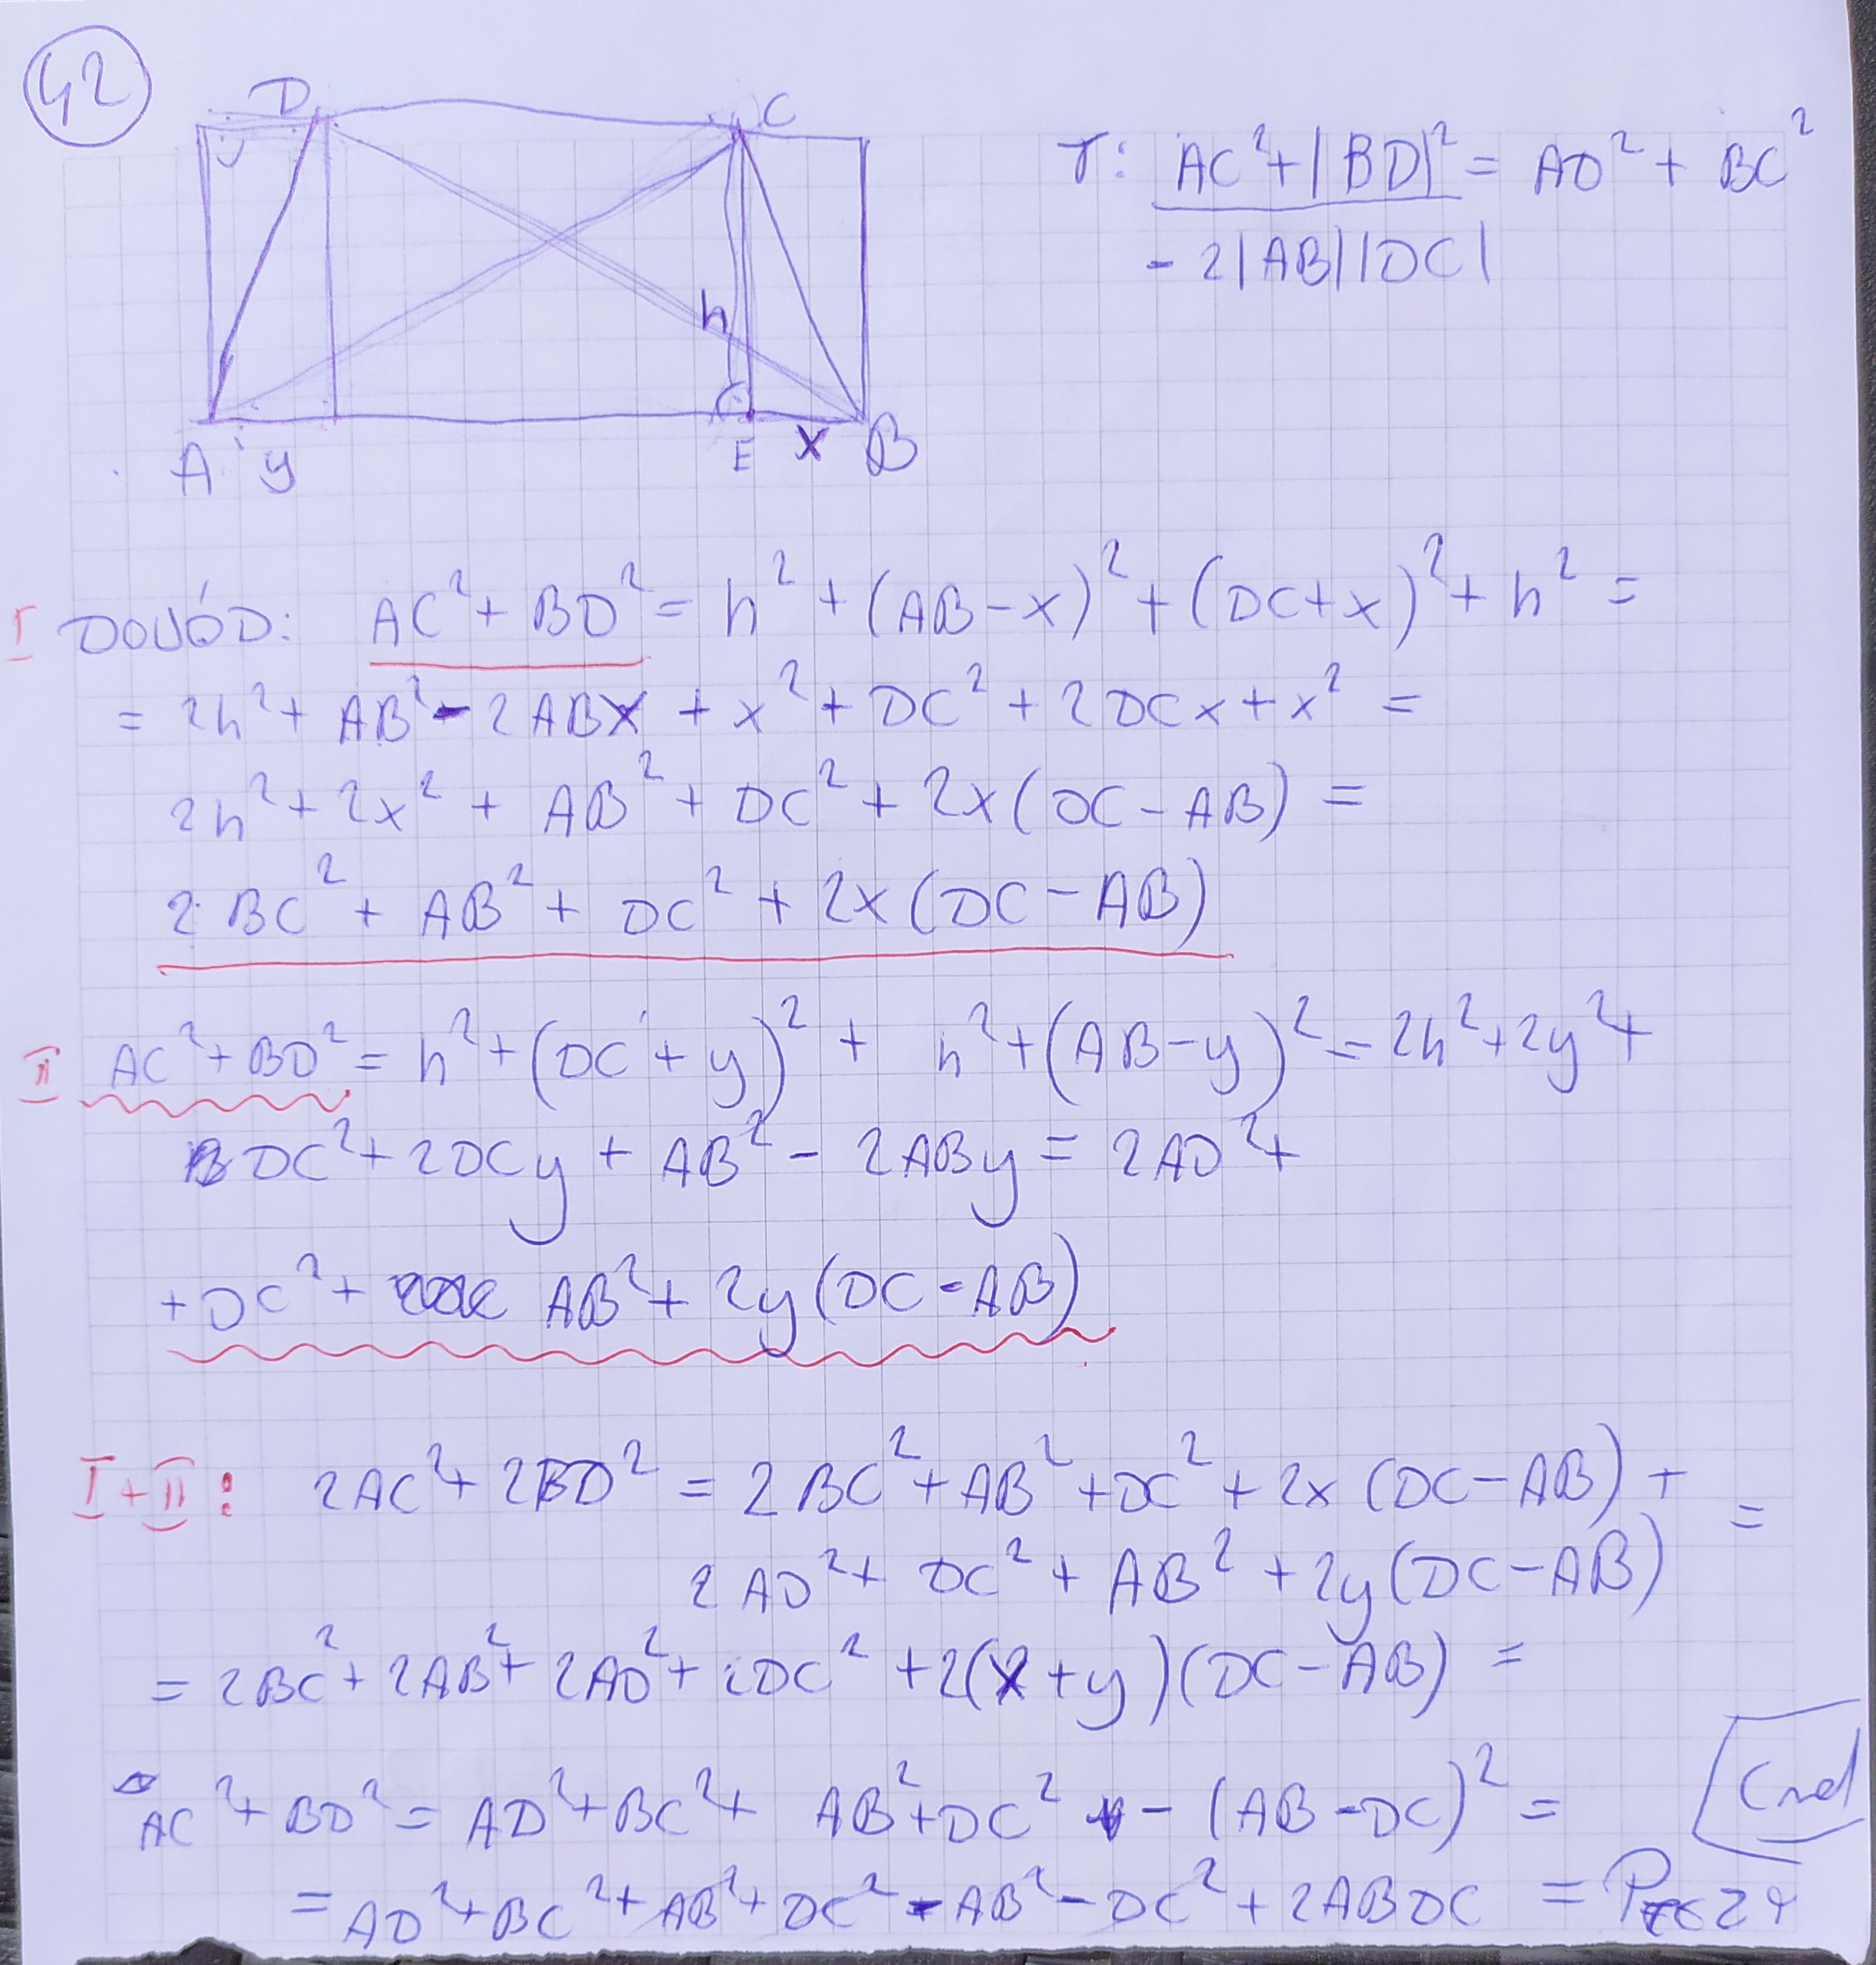 42
D C
T: AC² + |BD|² = AD² + BC²
- 2|AB||DC|
h
A y E x B
I DOWÓD: AC² + BD² = h² + (AB - x)² + (DC + x)² + h² =
= 2h² + AB² - 2ABx + x² + DC² + 2DCx + x² =
2h² + 2x² + AB² + DC² + 2x(DC - AB) =
2BC² + AB² + DC² + 2x(DC - AB)
II AC² + BD² = h² + (DC + y)² + h² + (AB - y)² = 2h² + 2y² +
DC² + 2DCy + AB² - 2ABy = 2AD² +
+ DC² + AB² + 2y(DC - AB)
I + II: 2AC² + 2BD² = 2BC² + AB² + DC² + 2x(DC - AB) +
2AD² + DC² + AB² + 2y(DC - AB) =
= 2BC² + 2AB² + 2AD² + 2DC² + 2(x + y)(DC - AB) =
AC² + BD² = AD² + BC² + AB² + DC² - (AB - DC)² =
Cnd
= AD² + BC² + AB² + DC² - AB² - DC² + 2ABDC =